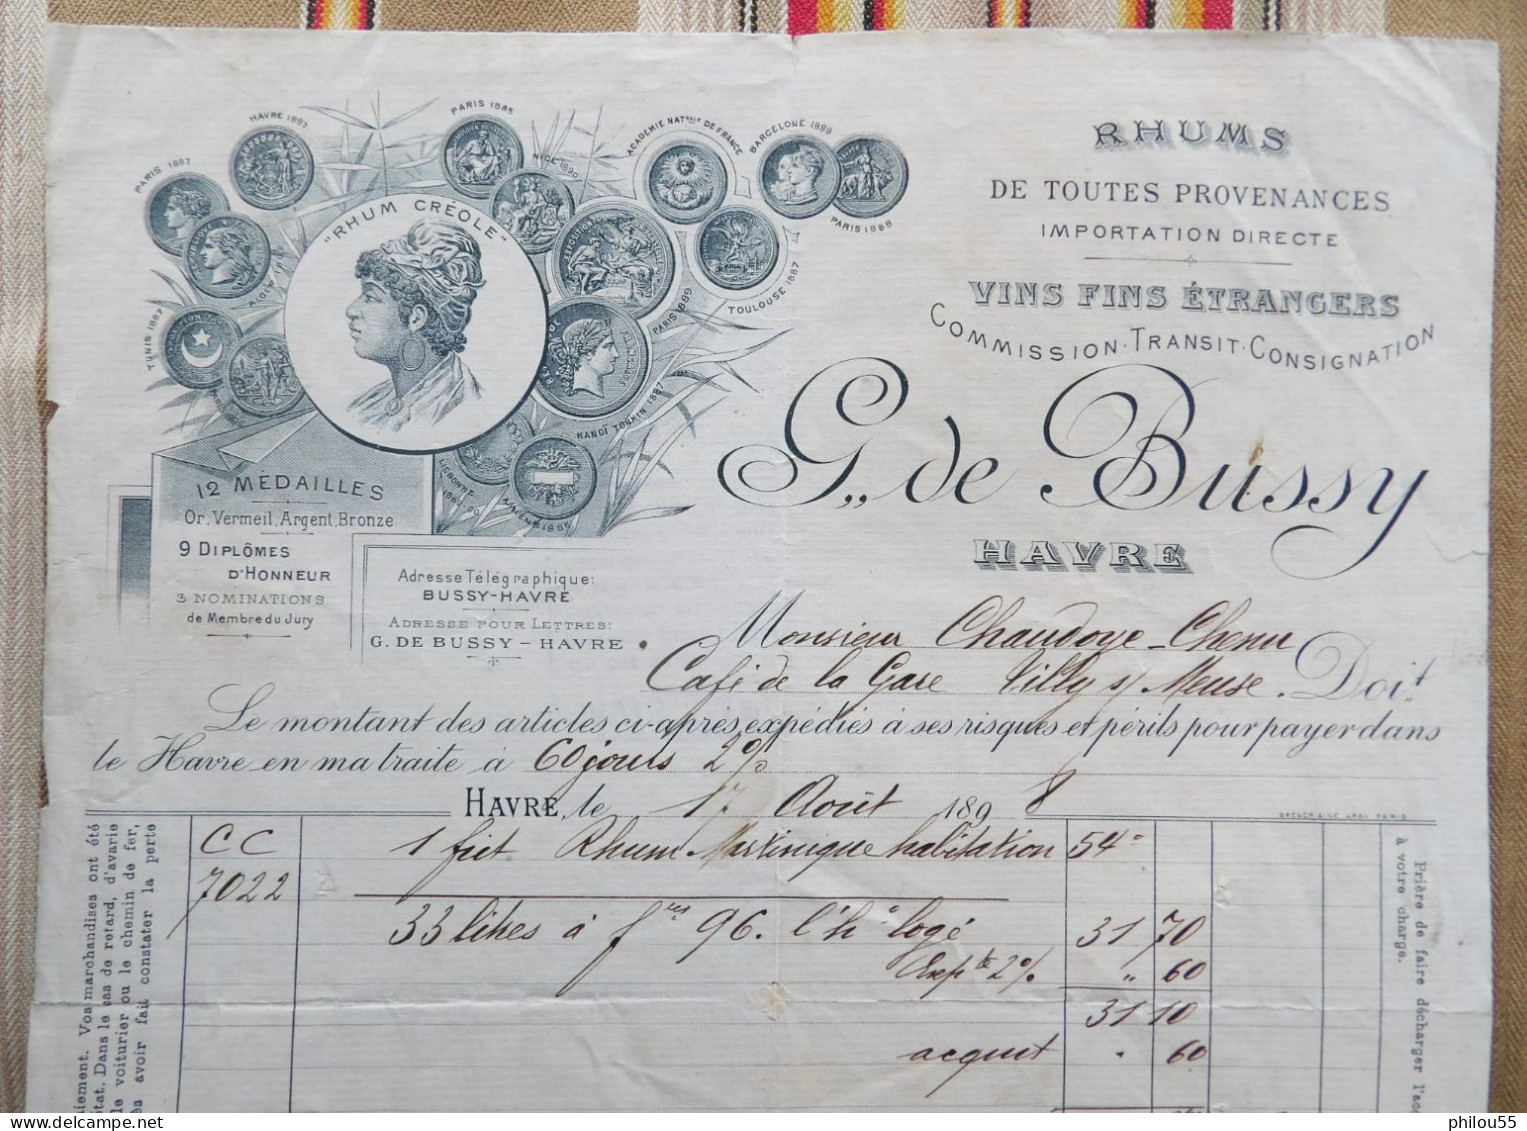 PARIS 1887
HAVRE 1887
PARIS 1885
NICE 1890
ACADEMIE NATnale DE FRANCE
BARCELONE 1889
PARIS 1888
TOULOUSE 1887
PARIS 1889
HANOÏ TONKIN 1887
AMIENS 1885
LISBONNE 1889-90
TUNIS 1887
"RHUM CRÉOLE"
12 MÉDAILLES
Or, Vermeil, Argent, Bronze
9 DIPLÔMES
D'HONNEUR
3 NOMINATIONS
de Membre du Jury
Adresse Télégraphique:
BUSSY-HAVRE
ADRESSE POUR LETTRES:
G. DE BUSSY – HAVRE
RHUMS
DE TOUTES PROVENANCES
IMPORTATION DIRECTE
VINS FINS ÉTRANGERS
COMMISSION · TRANSIT · CONSIGNATION
G. de Bussy
HAVRE
Monsieur Chaudoye-Chenu
Café de la Gare Tilly s/ Meuse. Doit
Le montant des articles ci-après expédiés à ses risques et périls pour payer dans
le Havre en ma traite à 60 jours 2%
HAVRE, le 17 Août 1898
CC 1 fût Rhum Martinique habitation 54=
7022
33 litres à f res 96. l'ho logé 31 70
Expte 2% " 60
31 10
acquit " 60
Vos marchandises ont été
Dans le cas de retard, d'avarie
le voiturier ou le chemin de fer,
avoir fait constater la perte
Prière de faire décharger
à votre charge.
philou55